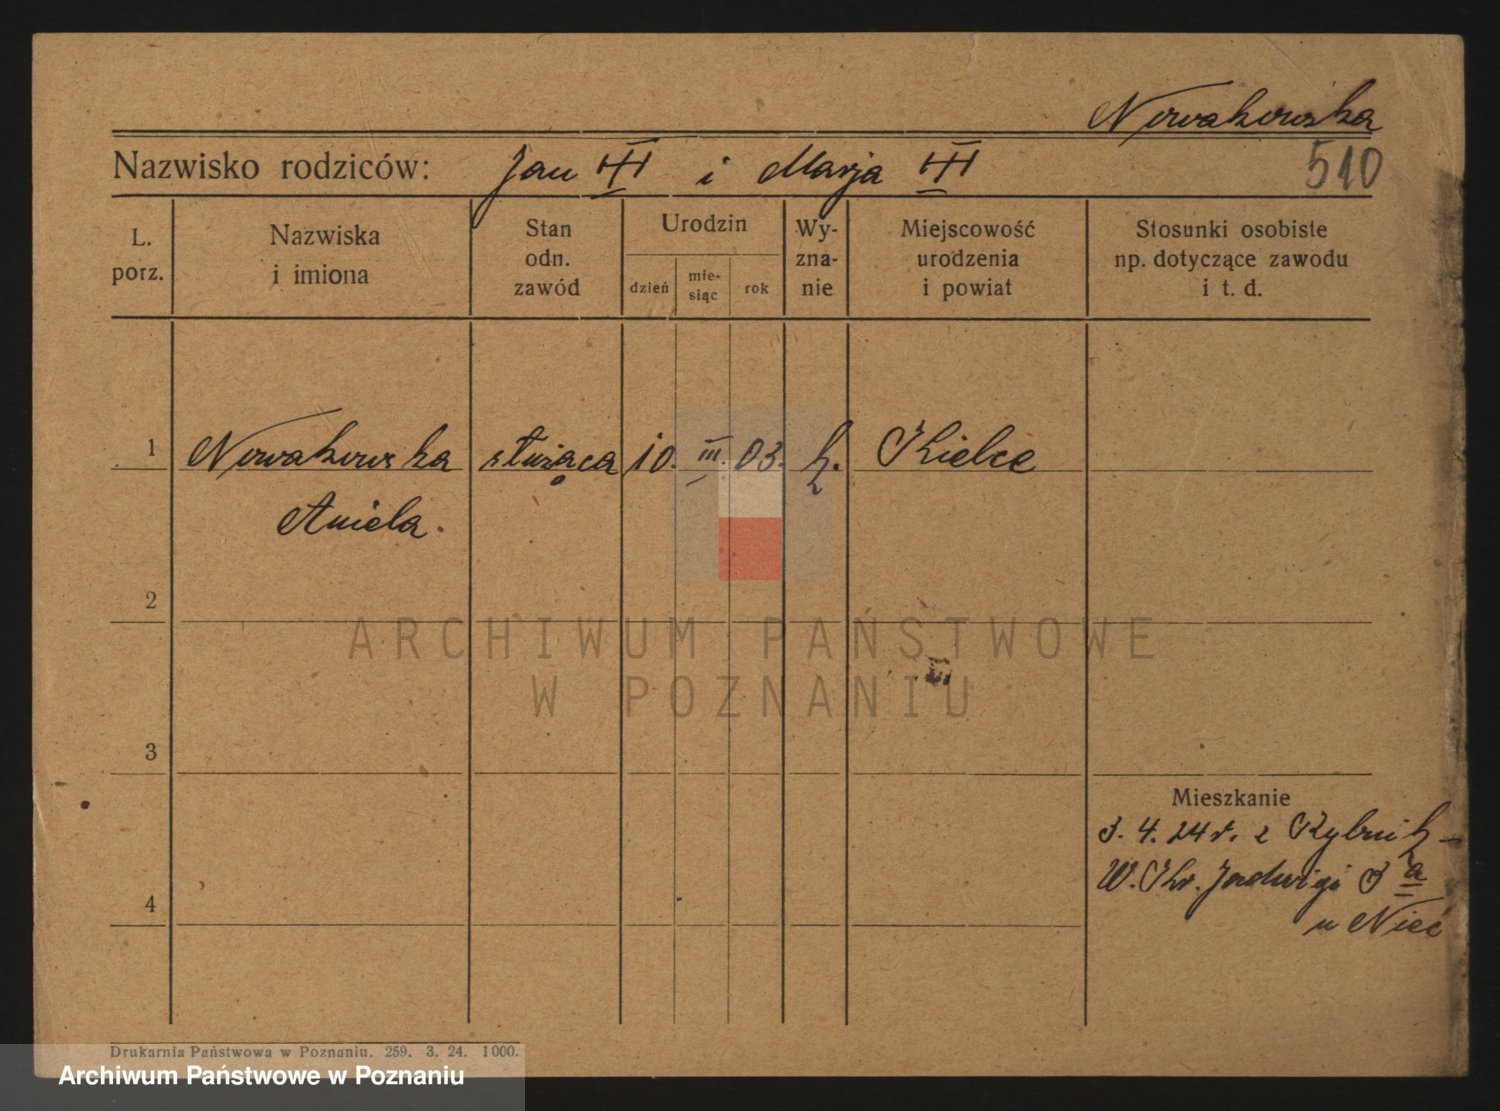 Nowakowska
Nazwisko rodziców: Jan i Marja
510
L. porz.
Nazwiska i imiona
Stan odn. zawód
Urodzin
dzień
mie-siąc
rok
Wy-zna-nie
Miejscowość urodzenia i powiat
Stosunki osobiste np. dotyczące zawodu i t. d.
1 Nowakowska służąca 10. III. 03. k. Kielce
Aniela.
2
ARCHIWUM PAŃSTWOWE
W POZNANIU
3
Mieszkanie
3. 4. 24 r. z Rybnik
4
W. Kr. Jadwigi 3 a
u Nieć
Drukarnia Państwowa w Poznaniu. 259. 3. 24. 1000.
Archiwum Państwowe w Poznaniu